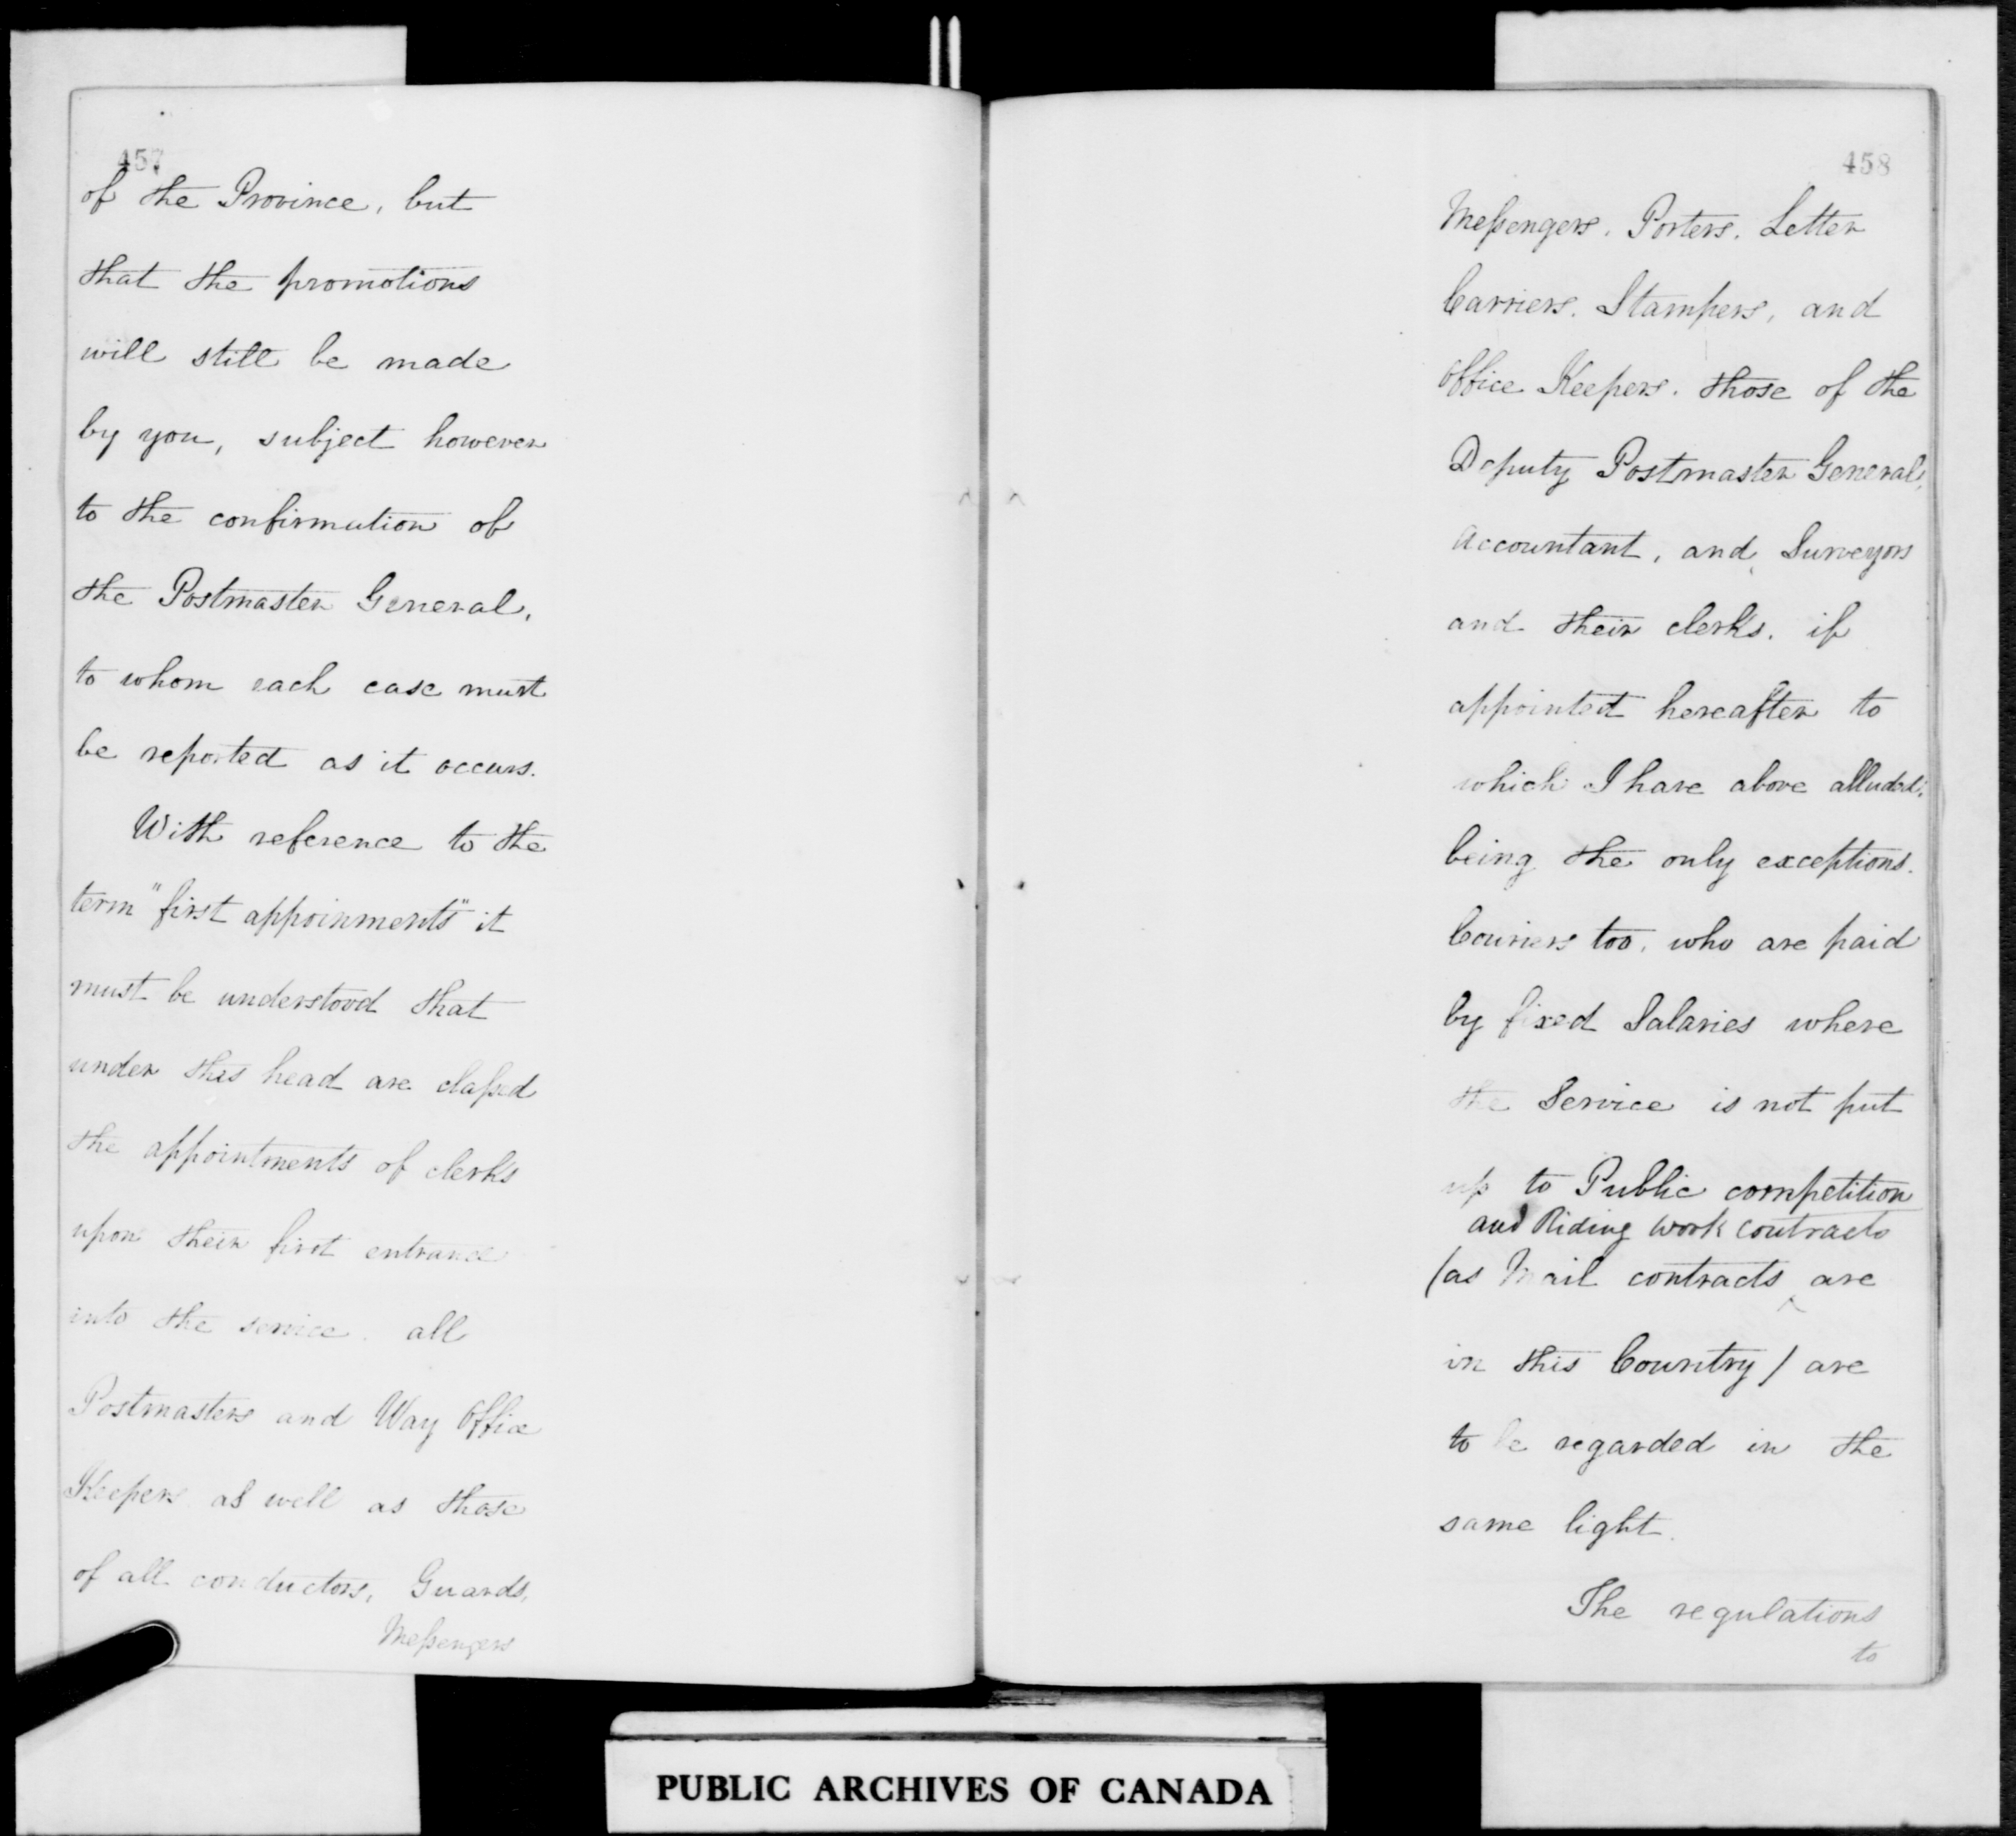 457
of the Province, but
that the promotions
will still be made
by you, subject however
to the confirmation of
the Postmaster General,
to whom each case must
be reported as it occurs.
With reference to the
term "first appoinments" it
must be understood that
under this head are classed
the appointments of clerks
upon their first entrance
into the service. all
Postmasters and Way Office
Keepers as well as those
of all conductors, Guards,
Messengers
458
Messengers. Porters. Letter
Carriers. Stampers, and
Office Keepers. those of the
Deputy Postmaster General,
Accountant, and Surveyors
and their clerks. if
appointed hereafter to
which I have above alluded,
being the only exceptions.
Couriers too, who are paid
by fixed Salaries where
the Service is not put
up to Public competition
and Riding work contracts
(as Mail contracts ^ are
in this Country) are
to be regarded in the
same light.
The regulations
to
PUBLIC ARCHIVES OF CANADA